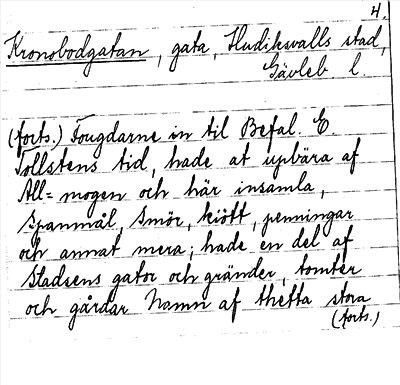 4.
Kronobodgatan, gata, Hudiksvalls stad,
Gävleb l.
(forts.) Fougdarne in til Befal. E.
Tollstens tid, hade at upbära af
All= mogen och här insamla,
Spanmål, Smör, kiött, penningar
och annat mera; hade en del af
Stadsens gator och gränder, tomter
och gårdar Namn af thetta stora
(forts.)